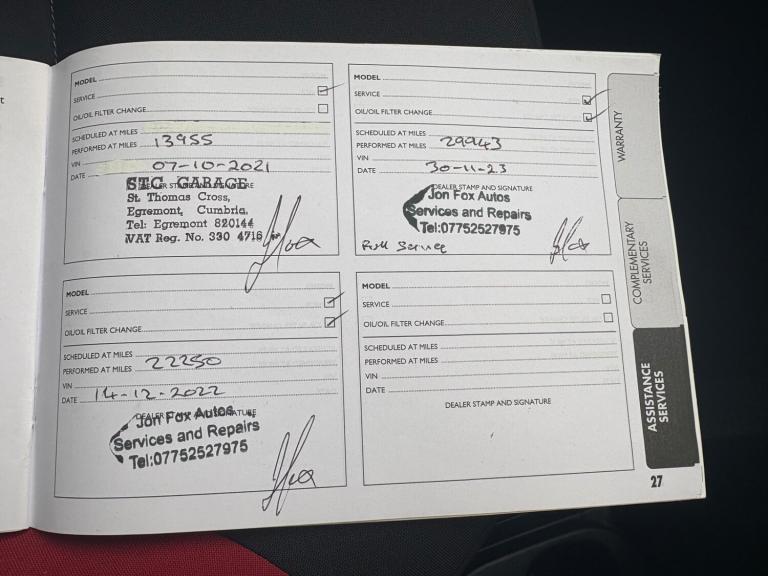 t
MODEL
SERVICE
OIL/OIL FILTER CHANGE
SCHEDULED AT MILES
PERFORMED AT MILES 13955
VIN
DATE 07-10-2021
DEALER STAMP AND SIGNATURE
STC GARAGE
St. Thomas Cross,
Egremont, Cumbria.
Tel: Egremont 820144
VAT Reg. No. 330 4716
MODEL
SERVICE
OIL/OIL FILTER CHANGE
SCHEDULED AT MILES
PERFORMED AT MILES 22250
VIN
DATE 14-12-2022
DEALER STAMP AND SIGNATURE
Jon Fox Autos
Services and Repairs
Tel:07752527975
MODEL
SERVICE
OIL/OIL FILTER CHANGE
SCHEDULED AT MILES
PERFORMED AT MILES 29943
VIN
DATE 30-11-23
DEALER STAMP AND SIGNATURE
Jon Fox Autos
Services and Repairs
Tel:07752527975
Full Service
MODEL
SERVICE
OIL/OIL FILTER CHANGE
SCHEDULED AT MILES
PERFORMED AT MILES
VIN
DATE
DEALER STAMP AND SIGNATURE
WARRANTY
COMPLEMENTARY
SERVICES
ASSISTANCE
SERVICES
27